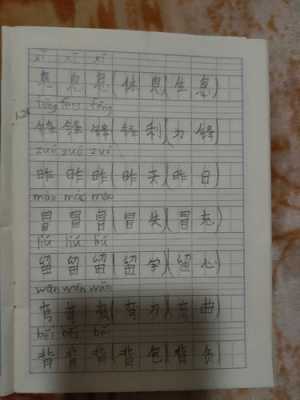 xī xī xī
息 息 息 (休 息) (生 息)
fēng fēng fēng
锋 锋 锋 (锋 利) (刀 锋)
zuó zuó zuó
昨 昨 昨 (昨 天) (昨 日)
mào mào mào
冒 冒 冒 (冒 失) (冒 充)
liú liú liú
留 留 留 (留 学) (留 心)
wān wān wān
弯 弯 弯 (弯 刀) (弯 曲)
bēi bēi bēi
背 背 背 (背 包)